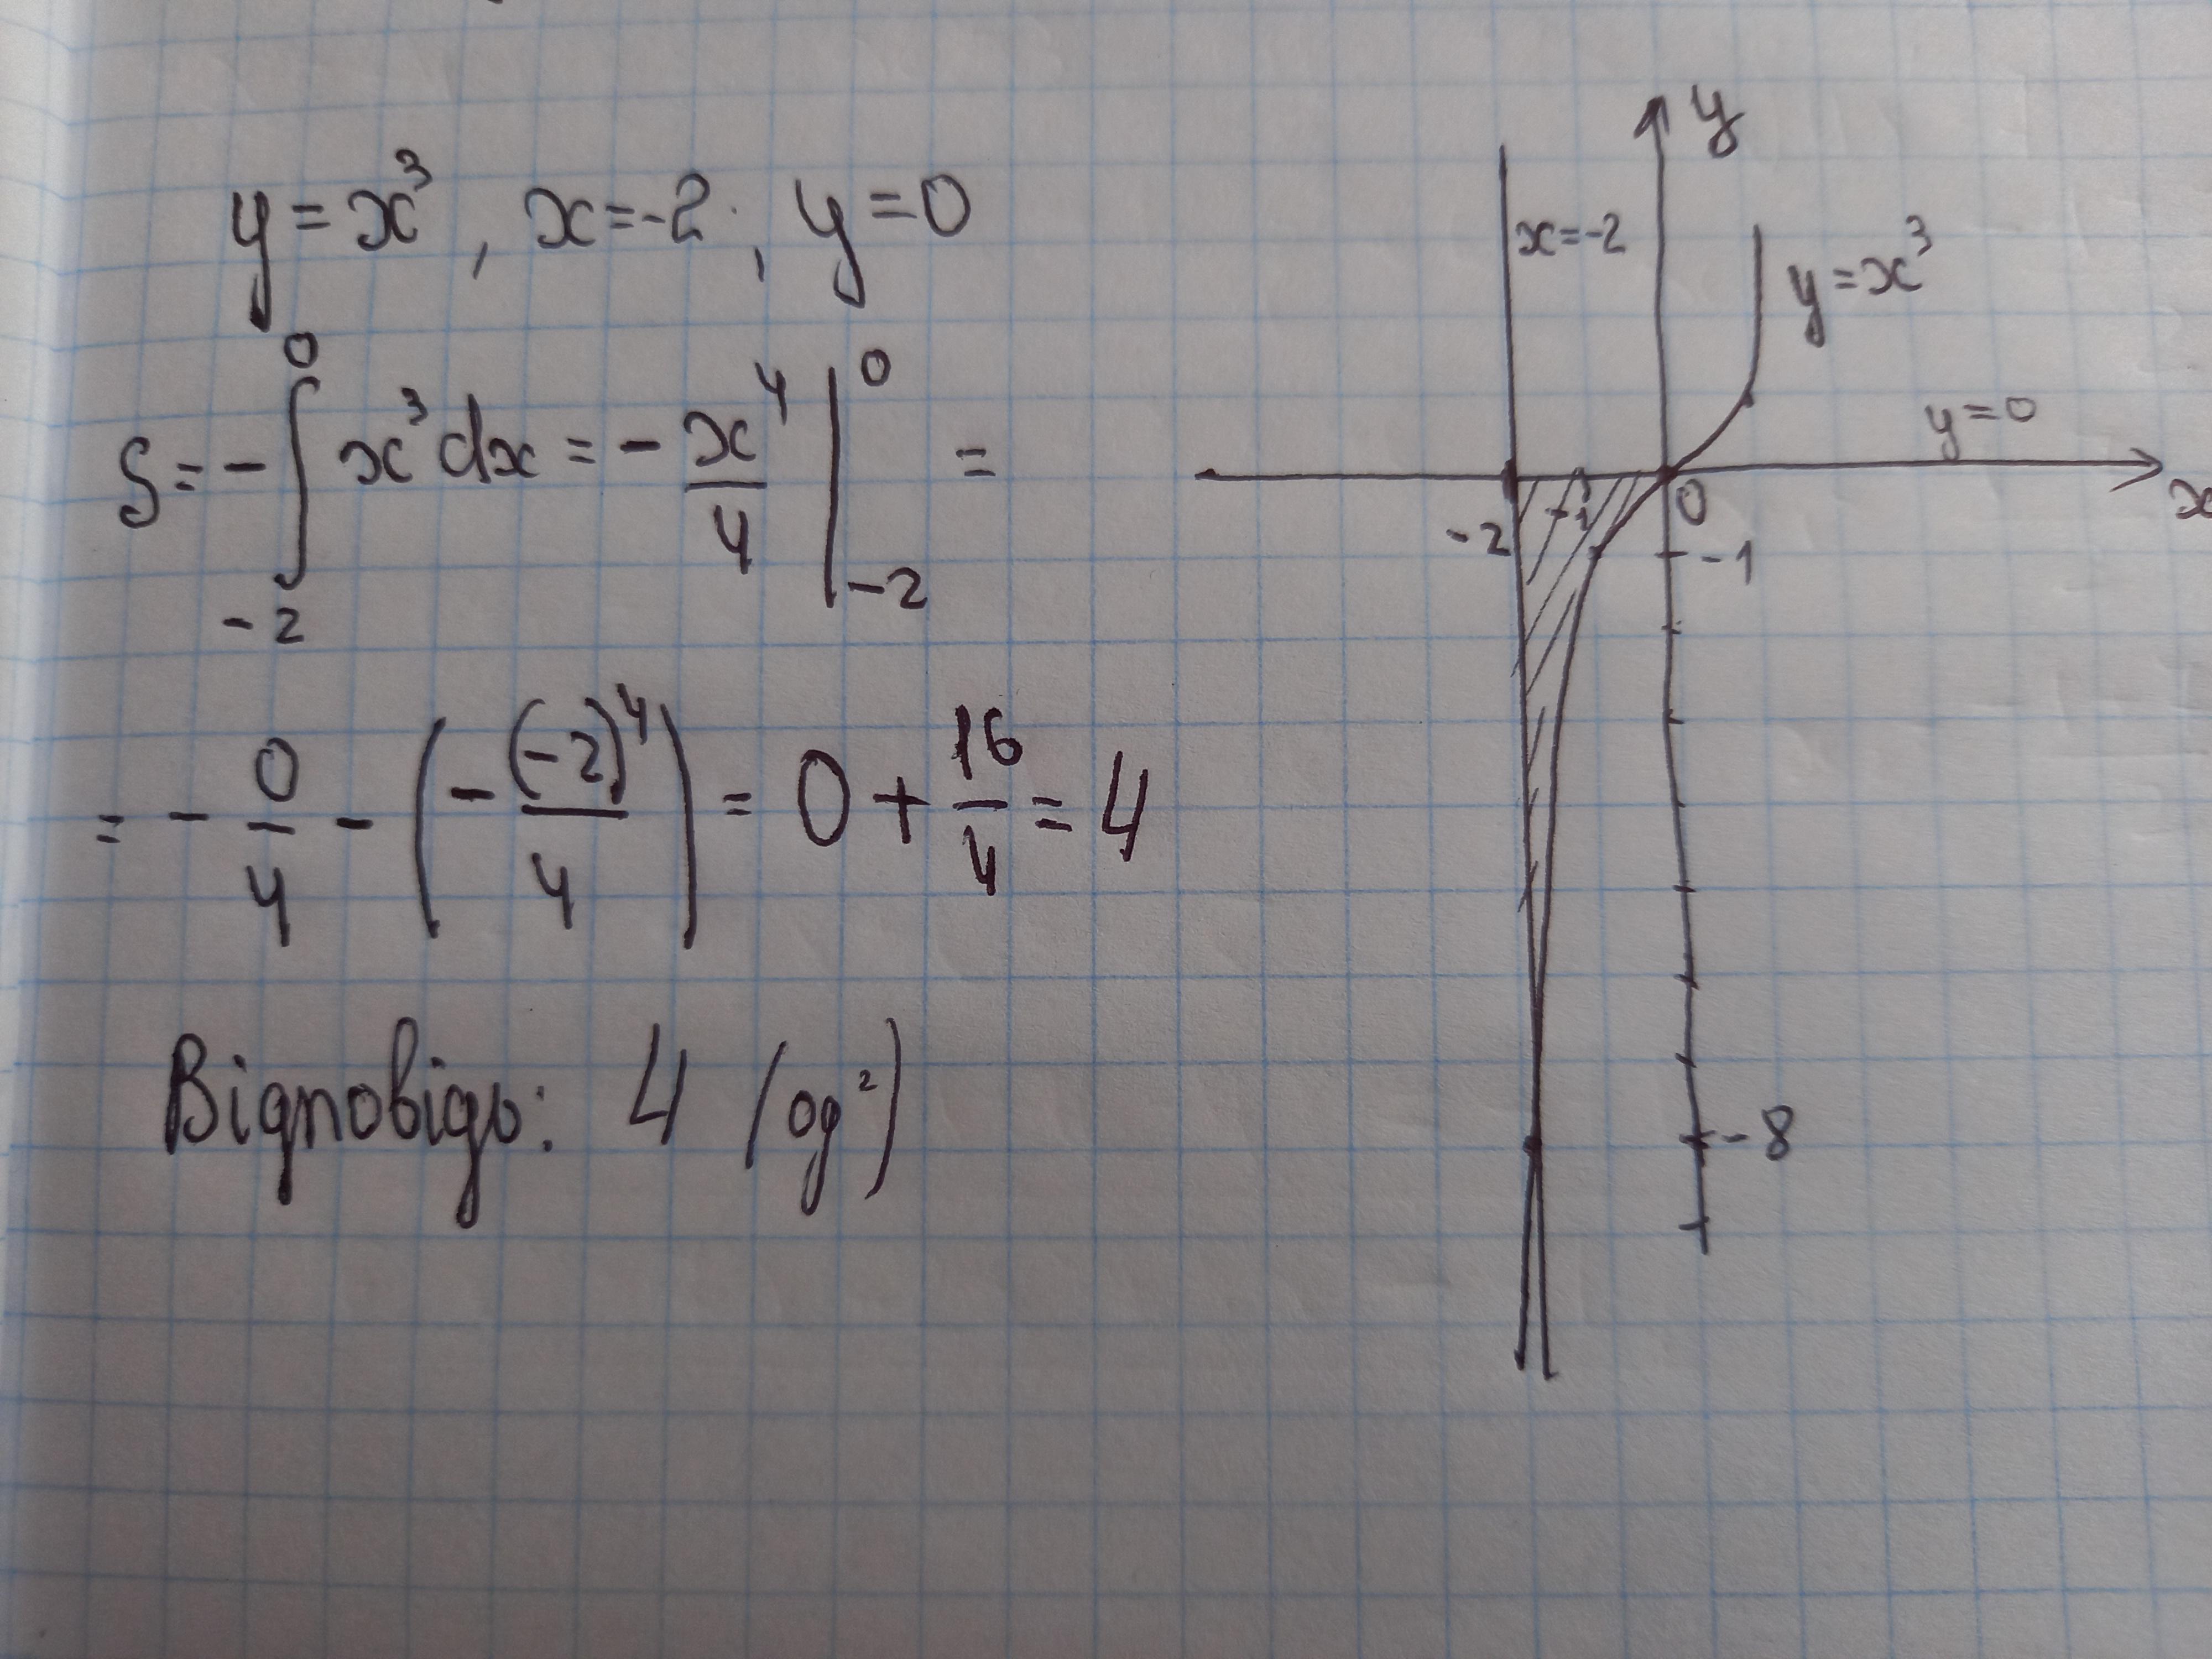 y = x³, x = -2, y = 0
S = - ∫₋₂⁰ x³ dx = - x⁴/4 |₋₂⁰ =
= - 0/4 - (- (-2)⁴/4) = 0 + 16/4 = 4
Відповідь: 4 (од²)
y
x = -2
y = x³
y = 0
x
-2
-1
0
-1
-8